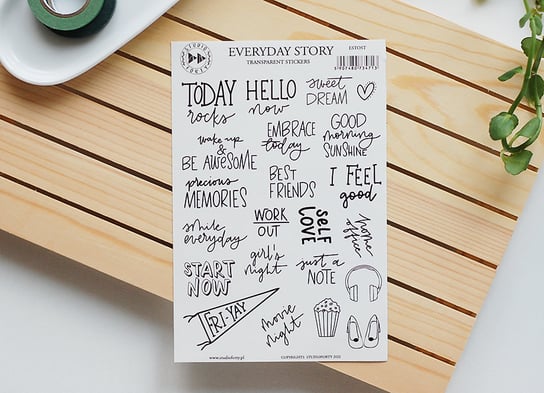 STUDIO
FORTY
EVERYDAY STORY
TRANSPARENT STICKERS
ESTOST
5907480734713
TODAY
rocks
HELLO
now
sweet
DREAM
wake up
&
BE AWESOME
EMBRACE
today
GOOD
morning
SUNSHINE
precious
MEMORIES
BEST
FRIENDS
I FEEL
good
smile
everyday
WORK
OUT
SELF
LOVE
home
office
START
NOW
girl's
night
just a
NOTE
FRI-YAY
movie
night
www.studioforty.pl
COPYRIGHTS STUDIOFORTY 2021